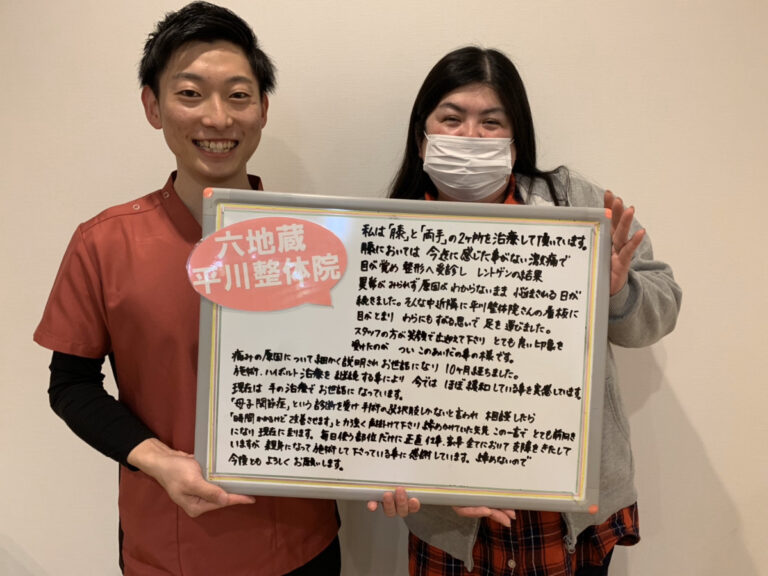 六地蔵
平川整体院
私は「膝」と「両手」の2ヶ所を治療して頂いています。
膝においては 今迄に感じた事がない激痛で
目が覚め 整形へ受診し レントゲンの結果
異常がみられず 原因がわからないまま 悩まされる日が
続きました。そんな中近隣に平川整体院さんの看板に
目がとまり わらにもすがる思いで 足を運びました。
スタッフの方が笑顔で出迎えて下さり とても良い印象を
受けたのが ついこのあいだの事の様です。
痛みの原因について細かく説明されお世話になり 10ヶ月経ちました。
施術、ハイボルト治療を継続する事により 今では ほぼ緩和している事を実感しています。
現在は 手の治療でお世話になっています。
「母子関節症」という診断を受け 手術の選択肢しかないと言われ 相談したら
「時間かかるけど改善させます」と力強く声掛けて下さり 諦めかけていた矢先 この一言で とても前向き
になり現在に至ります。毎日使う部位だけに正直 仕事、家事 全てにおいて 支障をきたして
いますが 親身になって施術して下さっている事に感謝しています。諦めないので
今後とも よろしく お願いします。